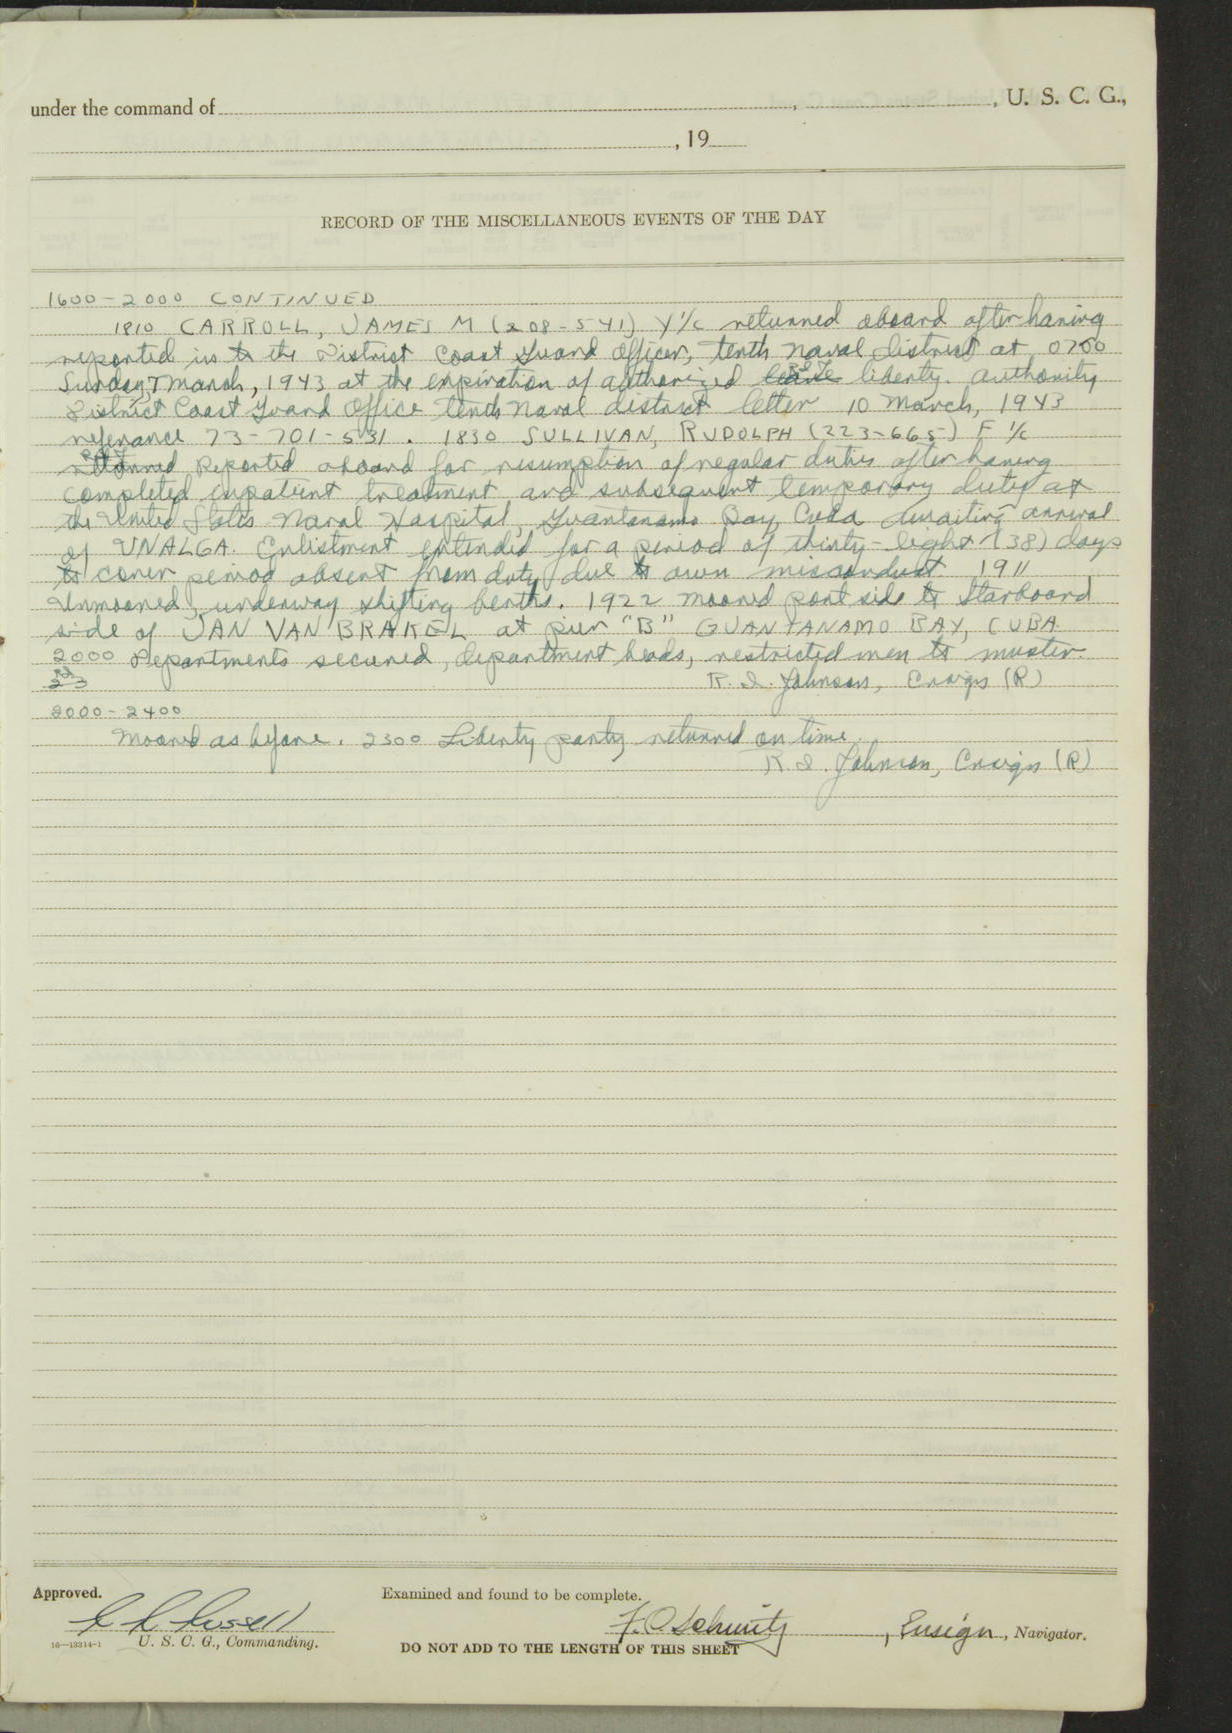 under the command of , , U. S. C. G.,
, 19
RECORD OF THE MISCELLANEOUS EVENTS OF THE DAY
1600-2000 CONTINUED
1810 CARROLL, JAMES M (208-541) Y1/c returned aboard after having
reported in to the District Coast Guard Officer, tenth naval district at 0700
Sunday, 7 March, 1943 at the expiration of authorized leave liberty. authority
District Coast Guard Office tenth naval district letter 10 March, 1943
referance 73-701-531. 1830 SULLIVAN, RUDOLPH (223-665) F 1/c
returned reported aboard for resumption of regular duties after having
completed inpatient treatment and subsequent temporary duty at
the United States Naval Hospital, Guantanamo Bay, Cuba awaiting arrival
of UNALGA. Enlistment extended for a period of thirty-eight (38) days
to cover period absent from duty due to own misconduct. 1911
Unmoored, underway shifting berths. 1922 moored port side to starboard
side of JAN VAN BRAKEL at pier "B" GUANTANAMO BAY, CUBA
2000 Departments secured, department heads, restricted men to muster.
R. I. Johnson, Ensign (R)
2000-2400
Moored as before. 2300 Liberty party returned on time.
R. I. Johnson, Ensign (R)
Approved. Examined and found to be complete.
Russell F. O Schmitz, Ensign, Navigator.
16-13314-1 U. S. C. G., Commanding.
DO NOT ADD TO THE LENGTH OF THIS SHEET